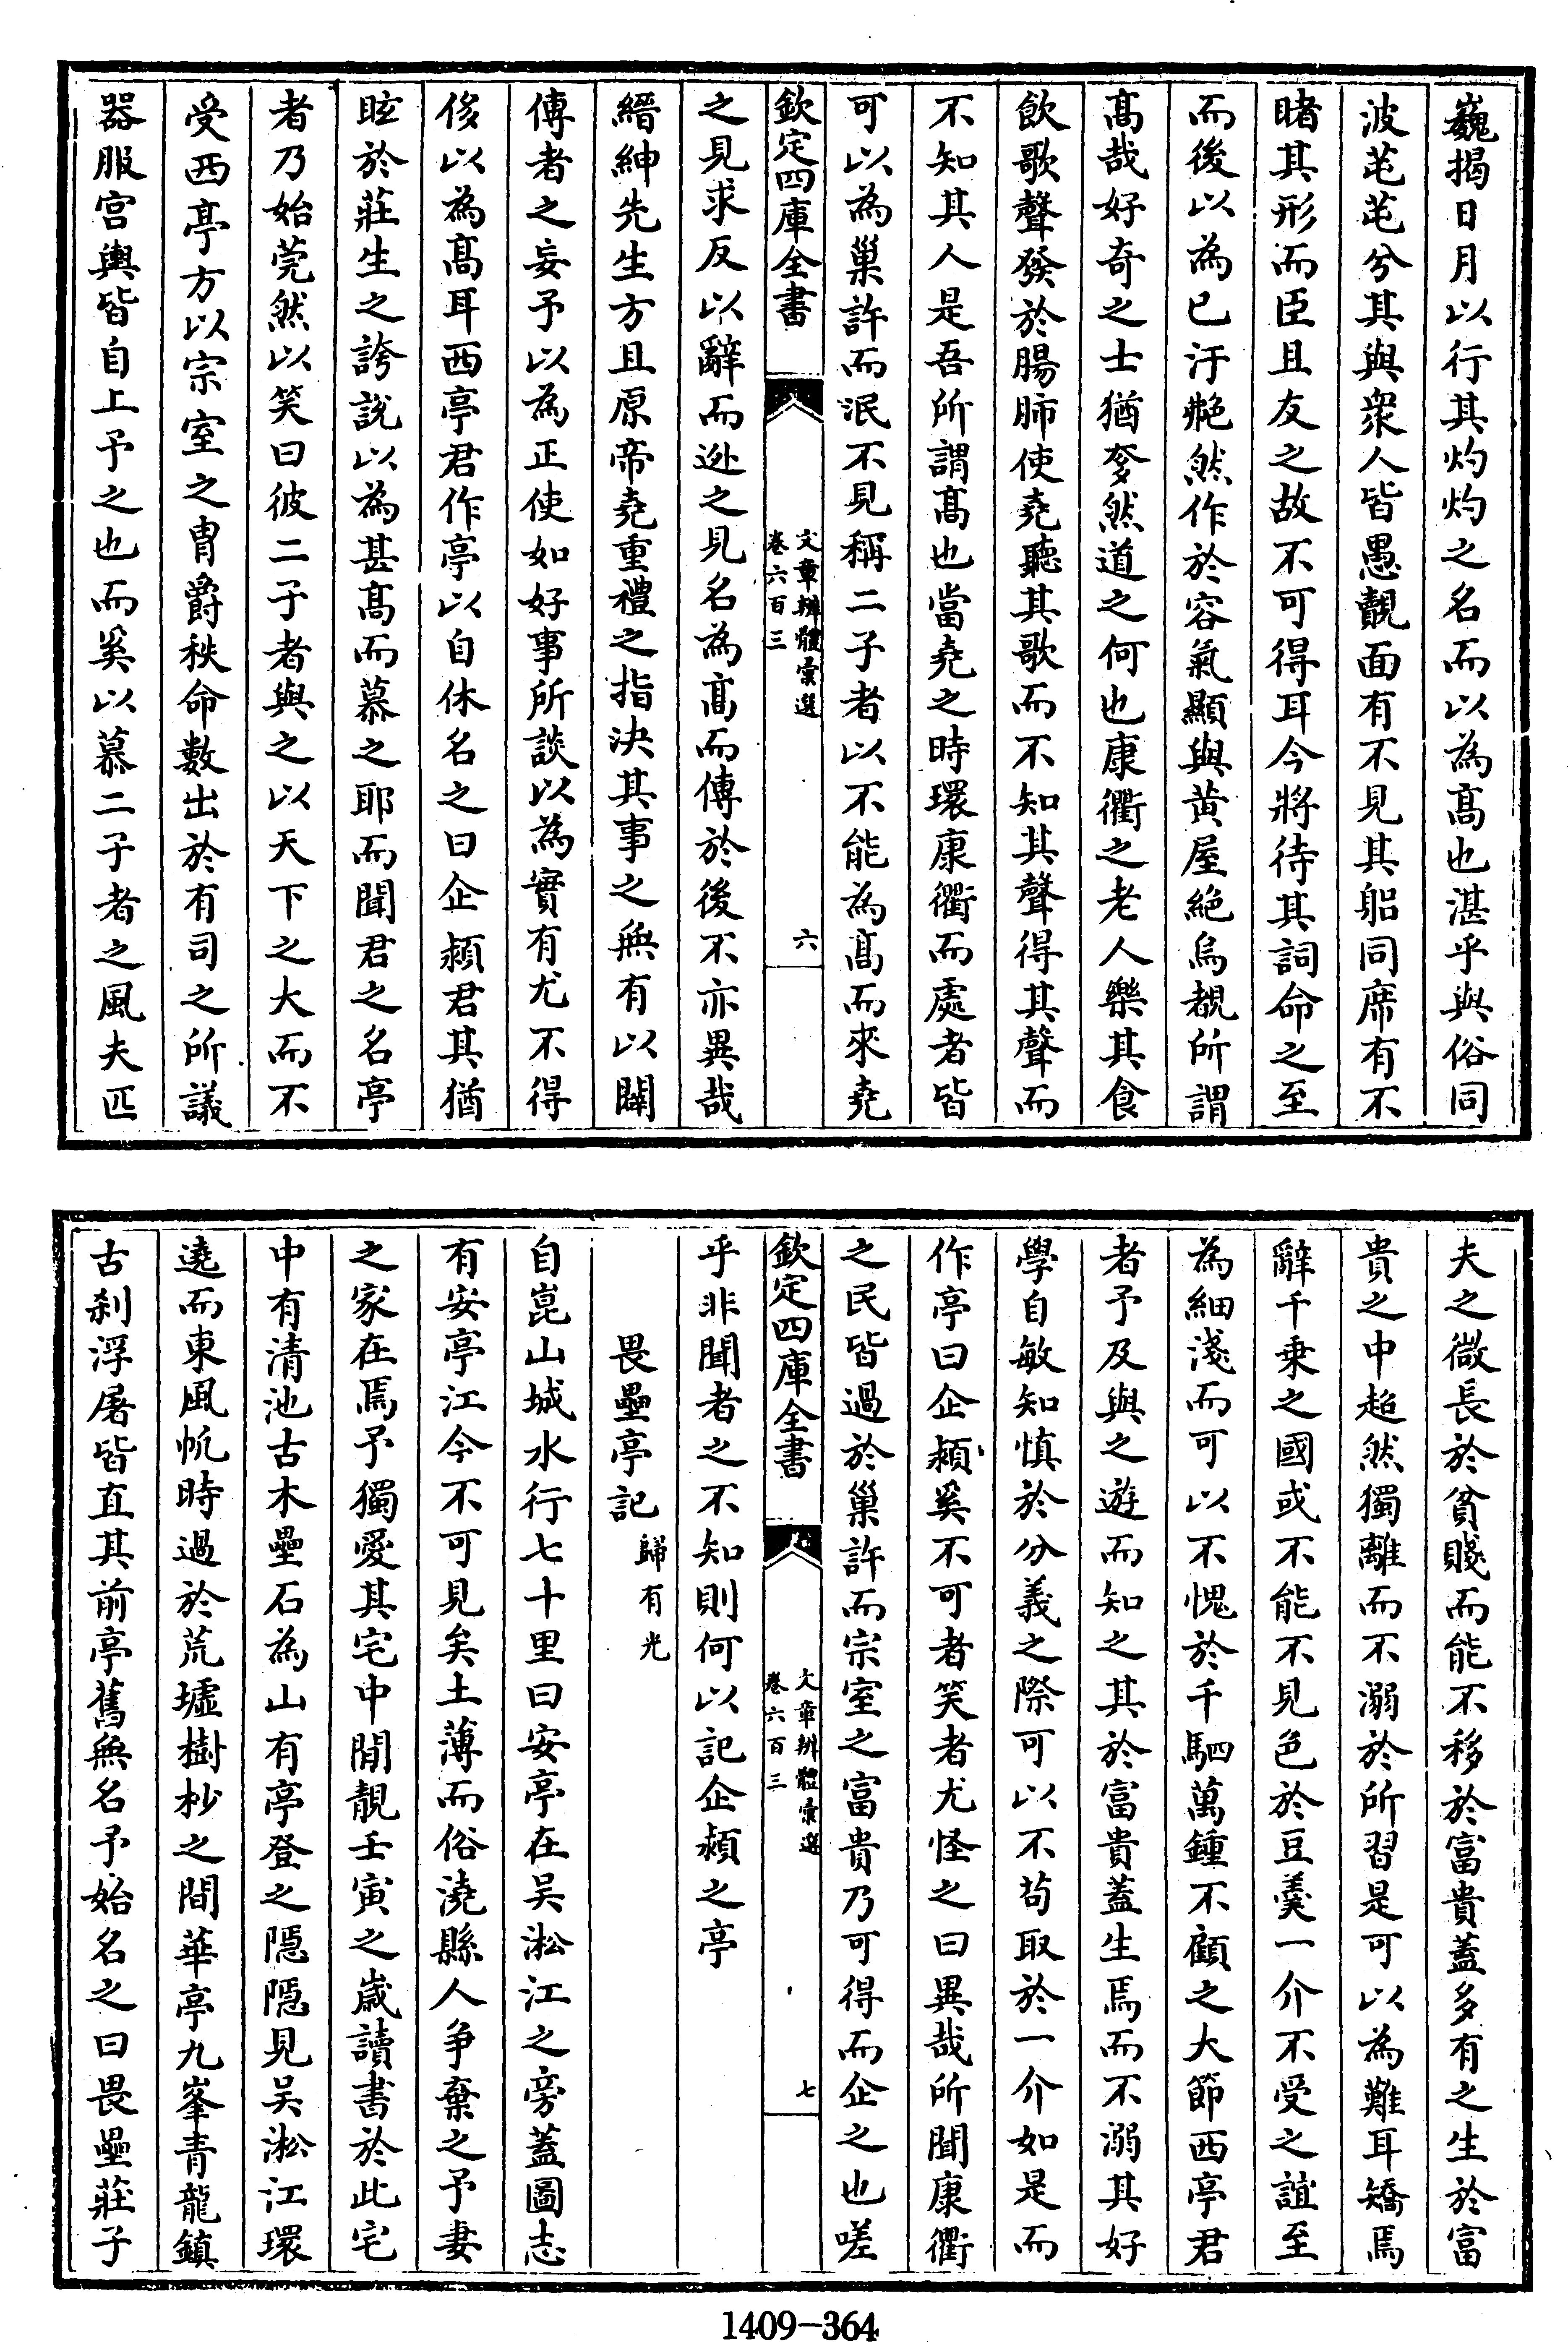 巍揭日月以行其灼灼之名而以為髙也湛乎與俗同
波芚芚兮其與衆人皆愚覿面有不見其貂同席有不
睹其形而臣且友之故不可得耳今將待其詞命之至
而後以為已汙艴然作於容氣顯與黄屋絶烏覩所謂
髙哉好奇之士猶奓然道之何也康衢之老人樂其食
飲歌聲發於腸肺使堯聽其歌而不知其聲得其聲而
不知其人是吾所謂髙也當堯之時環康衢而處者皆
可以為巢許而泯不見稱二子者以不能為髙而來堯
欽定四庫全書
文章辨體彙選
卷六百三
六
之見求反以辭而迯之見名為髙而傳於後不亦異哉
縉紳先生方且原帝堯重禮之指決其事之無有以闢
傳者之妄予以為正使如好事所談以為實有尤不得
侈以為髙耳西亭君作亭以自休名之曰企潁君其猶
眩於莊生之誇說以為甚髙而慕之耶而聞君之名亭
者乃始莞然以笑曰彼二子者與之以天下之大而不
受西亭方以宗室之胄爵秩命數出於有司之所議
器服宫輿皆自上予之也而奚以慕二子者之風夫匹
夫之微長於貧賤而能不移於富貴蓋多有之生於富
貴之中超然獨離而不溺於所習是可以為難耳矯焉
辭千乗之國或不能不見色於豆羮一介不受之誼至
為細淺而可以不愧於千駟萬鍾不顧之大節西亭君
者予及與之遊而知之其於富貴蓋生焉而不溺其好
學自敏知慎於分義之際可以不苟取於一介如是而
作亭曰企潁奚不可者笑者尤怪之曰異哉所聞康衢
之民皆過於巢許而宗室之富貴乃可得而企之也嗟
欽定四庫全書
文章辨體彙選
卷六百三
七
乎非聞者之不知則何以記企潁之亭
畏壘亭記歸有光
自崑山城水行七十里曰安亭在吴淞江之旁蓋圖志
有安亭江今不可見矣土薄而俗澆縣人争棄之予妻
之家在焉予獨愛其宅中閒靚壬寅之歳讀書於此宅
中有清池古木壘石為山有亭登之隠隠見吴淞江環
遶而東風帆時過於荒墟樹杪之間華亭九峯青龍鎮
古刹浮屠皆直其前亭舊無名予始名之曰畏壘莊子
1409-364